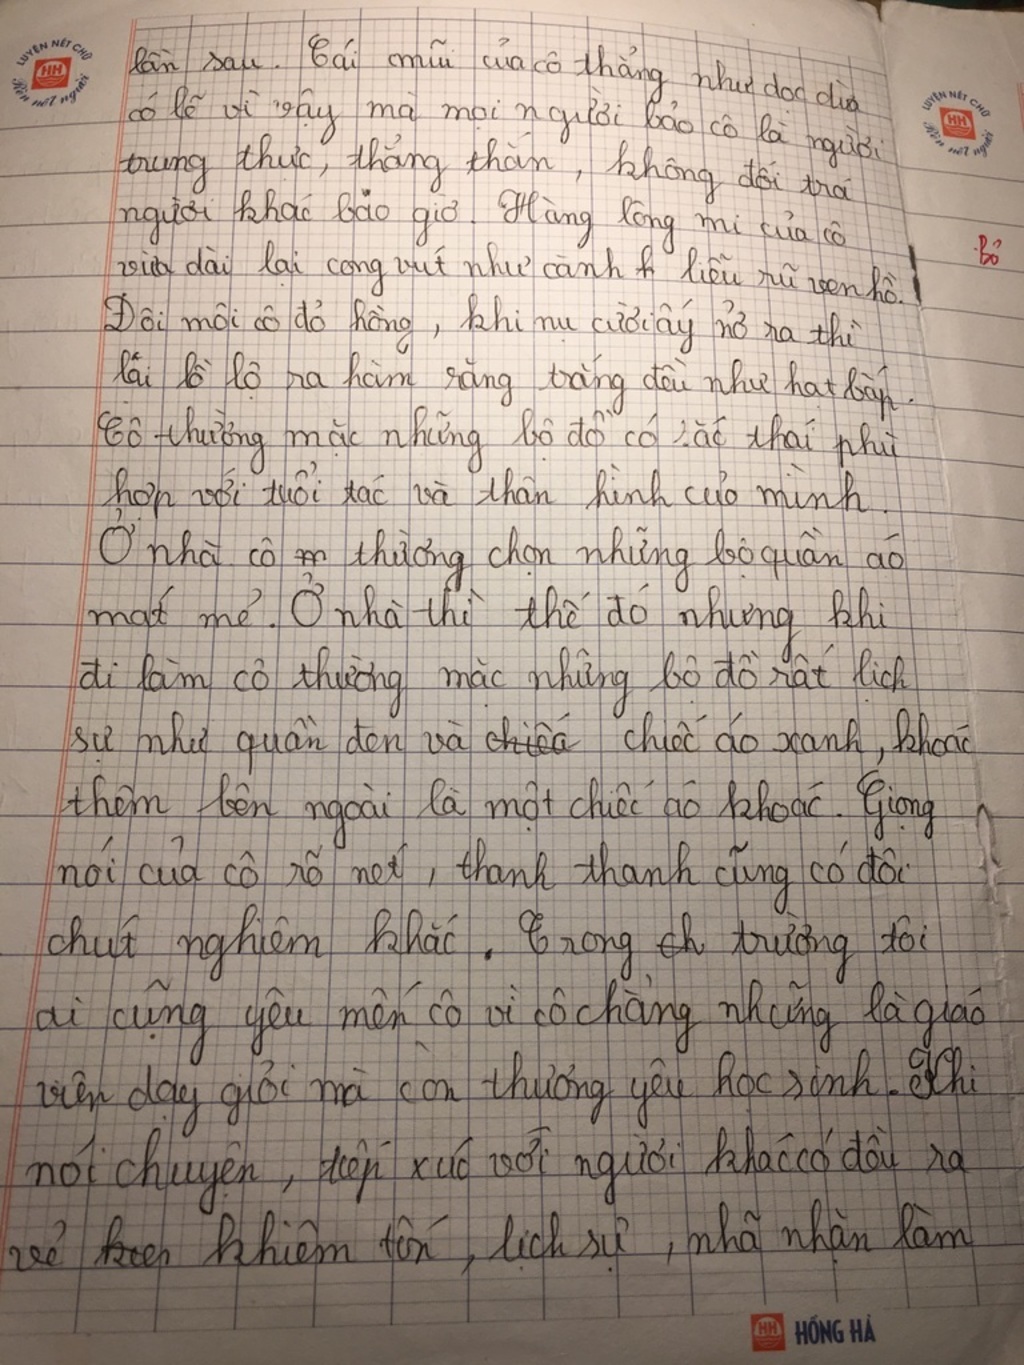 LUYỆN NÉT CHỮ
HH
Rèn nết người
LUYỆN NÉT CHỮ
HH
Rèn nết người
lần sau. Cái mũi của cô thẳng như dọc dừa
có lẽ vì vậy mà mọi người bảo cô là người
trung thực, thẳng thắn, không dối trá
người khác bảo giờ. Hàng lông mi của cô
vừa dài lại cong vút như cành liễu rũ ven hồ.
Bỏ
Đôi môi cô đỏ hồng, khi nụ cười ấy nở ra thì
lãi lồ lộ ra hàm răng trắng đều như hạt bắp.
Cô thường mặc những bộ đồ có sắc thái phù
hợp với tuổi tác và thân hình của mình.
Ở nhà cô thường chọn những bộ quần áo
mát mẻ. Ở nhà thì thế đó nhưng khi
đi làm cô thường mặc những bộ đồ rất lịch
sự như quần đen và chiếc áo xanh, khoác
thêm bên ngoài là một chiếc áo khoác. Giọng
nói của cô rõ nét, thanh thanh cũng có đôi
chút nghiêm khắc. Trong trường tôi
ai cũng yêu mến cô vì cô chẳng những là giáo
viên dạy giỏi mà còn thương yêu học sinh. Khi
nói chuyện, tiếp xúc với người khác cô đều ra
vẻ khiêm tốn, lịch sự, nhã nhặn làm
HH HỒNG HÀ